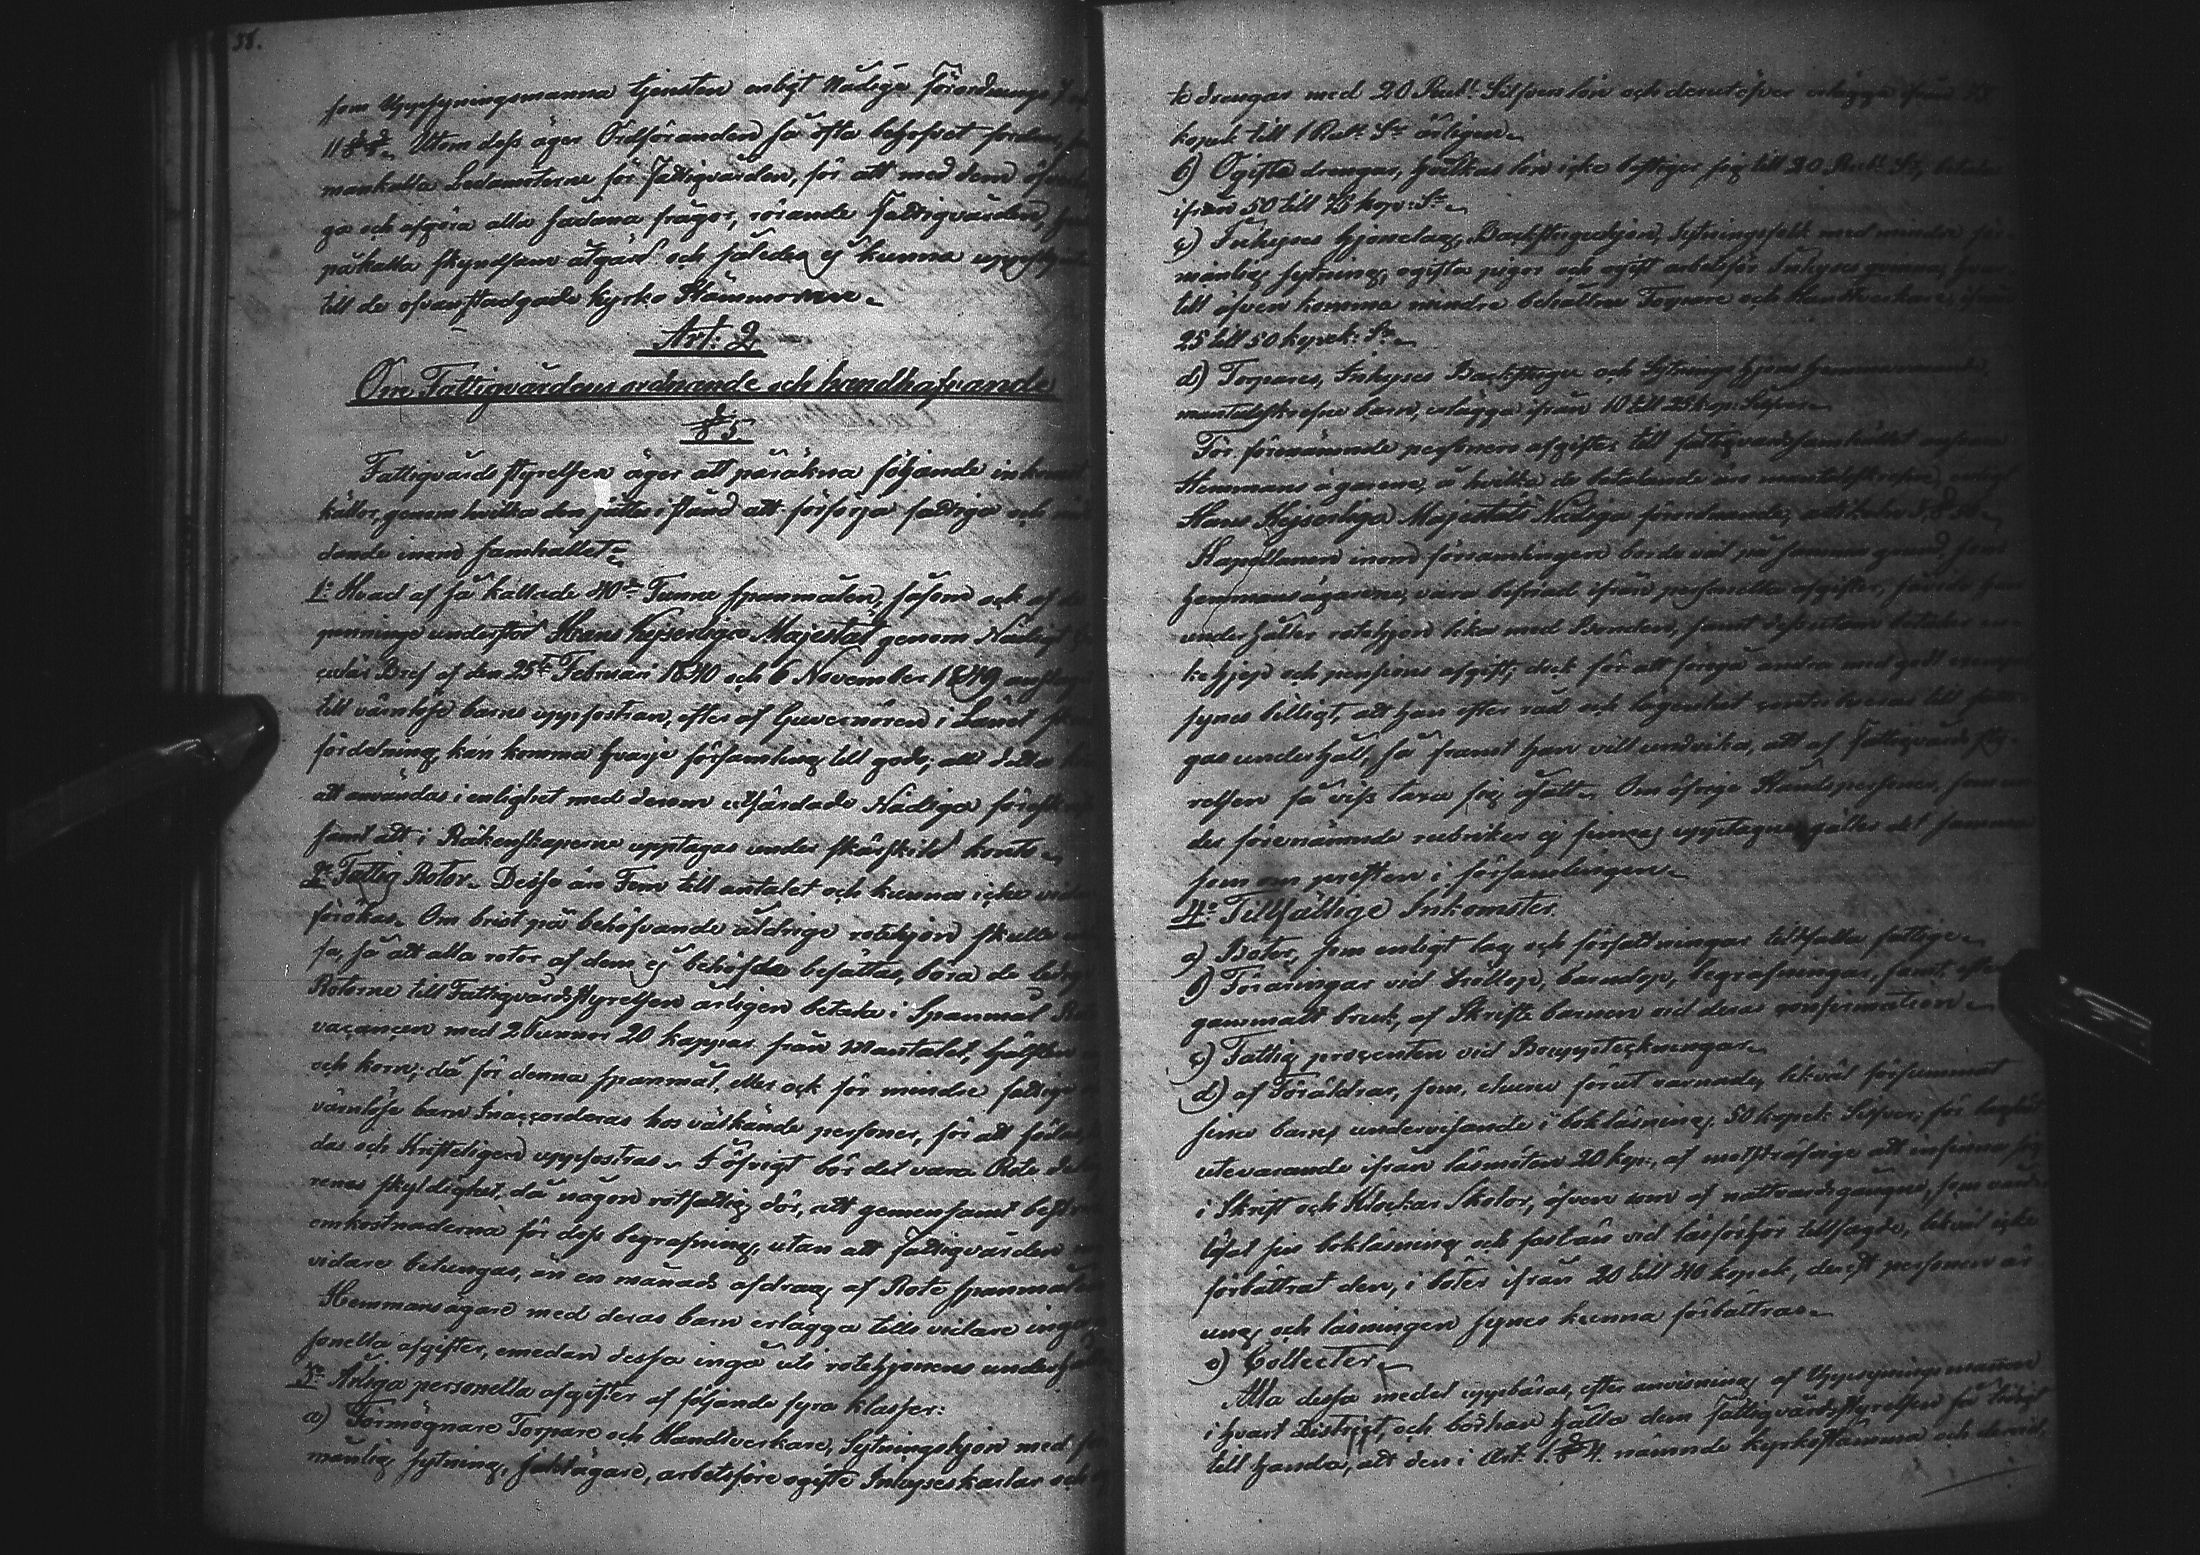 38.
som Uppsyningsmanna tjensten enligt Nådiga Förordnings 7 o
11 §§. Utom dess äger Ordföranden så ofta behofvet fordrar,
mankalla Ledamöterne för Fattigvården, för att med dem öfverlä
ga och afgöra alla sådana frågor, rörande Fattigvården,
påkalla skyndsam åtgärd och således ej kunna uppskjutas
till de ofvanstadgade Kyrko Stämmorne.
Art: 2
Om Fattigvårdens ordnande och handhafvande
§ 5
Fattigvårds styrelsen äger att påräkna följande inkomst
källor, genom hvilka den sättes i stånd att försörja fattige och
dande inom samhället:
1:o Hvad af så kallade 40:de Tunne spanmålen, såsom ock af de
penninge understöd Hans Kejserliga Majestät genom Nådigt
culär Bref af den 25:te Februari 1840 och 6 November 1849 anslagit
till värnlöse barns uppfostran, efter af Guvernören i Länet
fördelning, kan komma hvarje församling till godo; allt detta
att användas i enlighet med derom utfärdade Nådiga föreskr
samt att i Räkenskaperne upptagas under särskilt konto.
2:o Fattig Rotor. Dessa äro Fem till antalet och kunna icke vidare
förökas. Om brist på behöfvande åldrige rotehjon skulle
sa, så att alla rotor af dem ej behöfde besättas, böra de
Roterne till Fattigvårdsstyrelsen årligen betala i Spanmål
vacancen med 2 tunnor 20 kappar från Mantalet, hälften
och korn; då för denna spanmål, eller ock för mindre fattiga
värnlöse barn inaccorderas hos välkände personer, för att födas,
das och Kristeligen uppfostras. I öfrigt bör det vara Rote
renas skyldighet, då någon rotfattig dör, att gemensamt bestrida
omkostnaderna för dess begrafning, utan att Fattigvården
vidare betungas, än en månads afdrag af Rote spanmålen
Hemmansägare med deras barn erlägga tills vidare inga
sonella afgifter, emedan dessa ingå uti rotehjonens underhåll
3:o Årliga personella afgifter af följande fyra klasser:
a) Förmögnare Torpare och Handtverkare, Sytningshjon med för
månlig sytning, Saktägare, arbetsföre ogifte Inhyseskarlar och
te drengar med 20 Rub: Silfvers lön och derutöfver erlägga ifrån
kopek till 1 Rub: S:r årligen.
b) Ogifta drengar, hvilkas lön icke bestiger sig till 20 Rub: S:r, betala
ifrån 50 till 75 kop: S:r.
c) Inhyses hjonelag, Backstuguhjon, Sytningsfolk med mindre för-
månlig sytning, ogifta pigor och ogift arbetsför Inhyses qvinna, hvar
till äfven komma mindre behållne Torpare och Handtverkare, ifrån
25 till 50 kopek: S:r.
d) Torpares, Inhyses Backstugu och Sytnings hjons hemmavarande
mantalsskrefne barn, erlägga ifrån 10 till 25 kop. Silfver.
För förenämnde personers afgifter till fattigvårdssamhället ansvara
Hemmans ägarena, å hvilka de betalande äro mantalsskrefne, enligt
Hans Kejserliga Majestäts Nådiga förordnande,
Kapellanen inom församlingen borde väl på samma grund, som
hemmansägarena, vara befriad ifrån personella afgifter, då
underhåller rotehjon lika med Bonden, samt dessutom betalar
och pensions afgift; dock för att föregå andra med godt exempel
synes billigt, att han efter råd och lägenhet contribuerar till
gas underhåll, så framt han vill undvika, att af Fattigvårds sty-
relsen få viss taxa sig ålagt. Om öfrige Ståndspersoner, som un
der förenämnde rubriker ej finnas upptagne, gäller det samma
som om presten i församlingen.
4:o Tillfällige Inkomster.
a) Böter, som enligt lag och författningar tillfalla fattige.
b) Föräringar vid bröllop, barndop, begrafningar, samt, efter
gammalt bruk, af Skrifte barnen vid deras confirmation.
c) Fattig procenten vid Bouppteckningar.
d) af Föräldrar, som, ehuru förut varnade, likväl försummat
sine barns undervisande i bokläsning, 50 kopek Silfver; för
utevarande ifrån läsmöten 20 kop:, af motsträfvige att infinna sig
i Skrift och Klockar Skolor, äfven som af nattvardsgångne, som vård
lösat sin bokläsning och fastän vid läsförhör tillsagde, likväl icke
förbättrat den, i böter ifrån 20 till 40 kopek, derest personen är
ung och läsningen synes kunna förbättras.
e) Collecter.
Alla dessa medel uppbäras, efter anvisning, af Uppsynings mannen
i hvart District, och bör han hålla dem Fattigvårdsstyrelsen så tidigt
till handa, att den i Art. 1. § 4. nämnde kyrkostämma och dervid